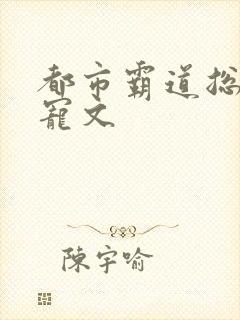 都市霸道总
寵文
陳宇喻